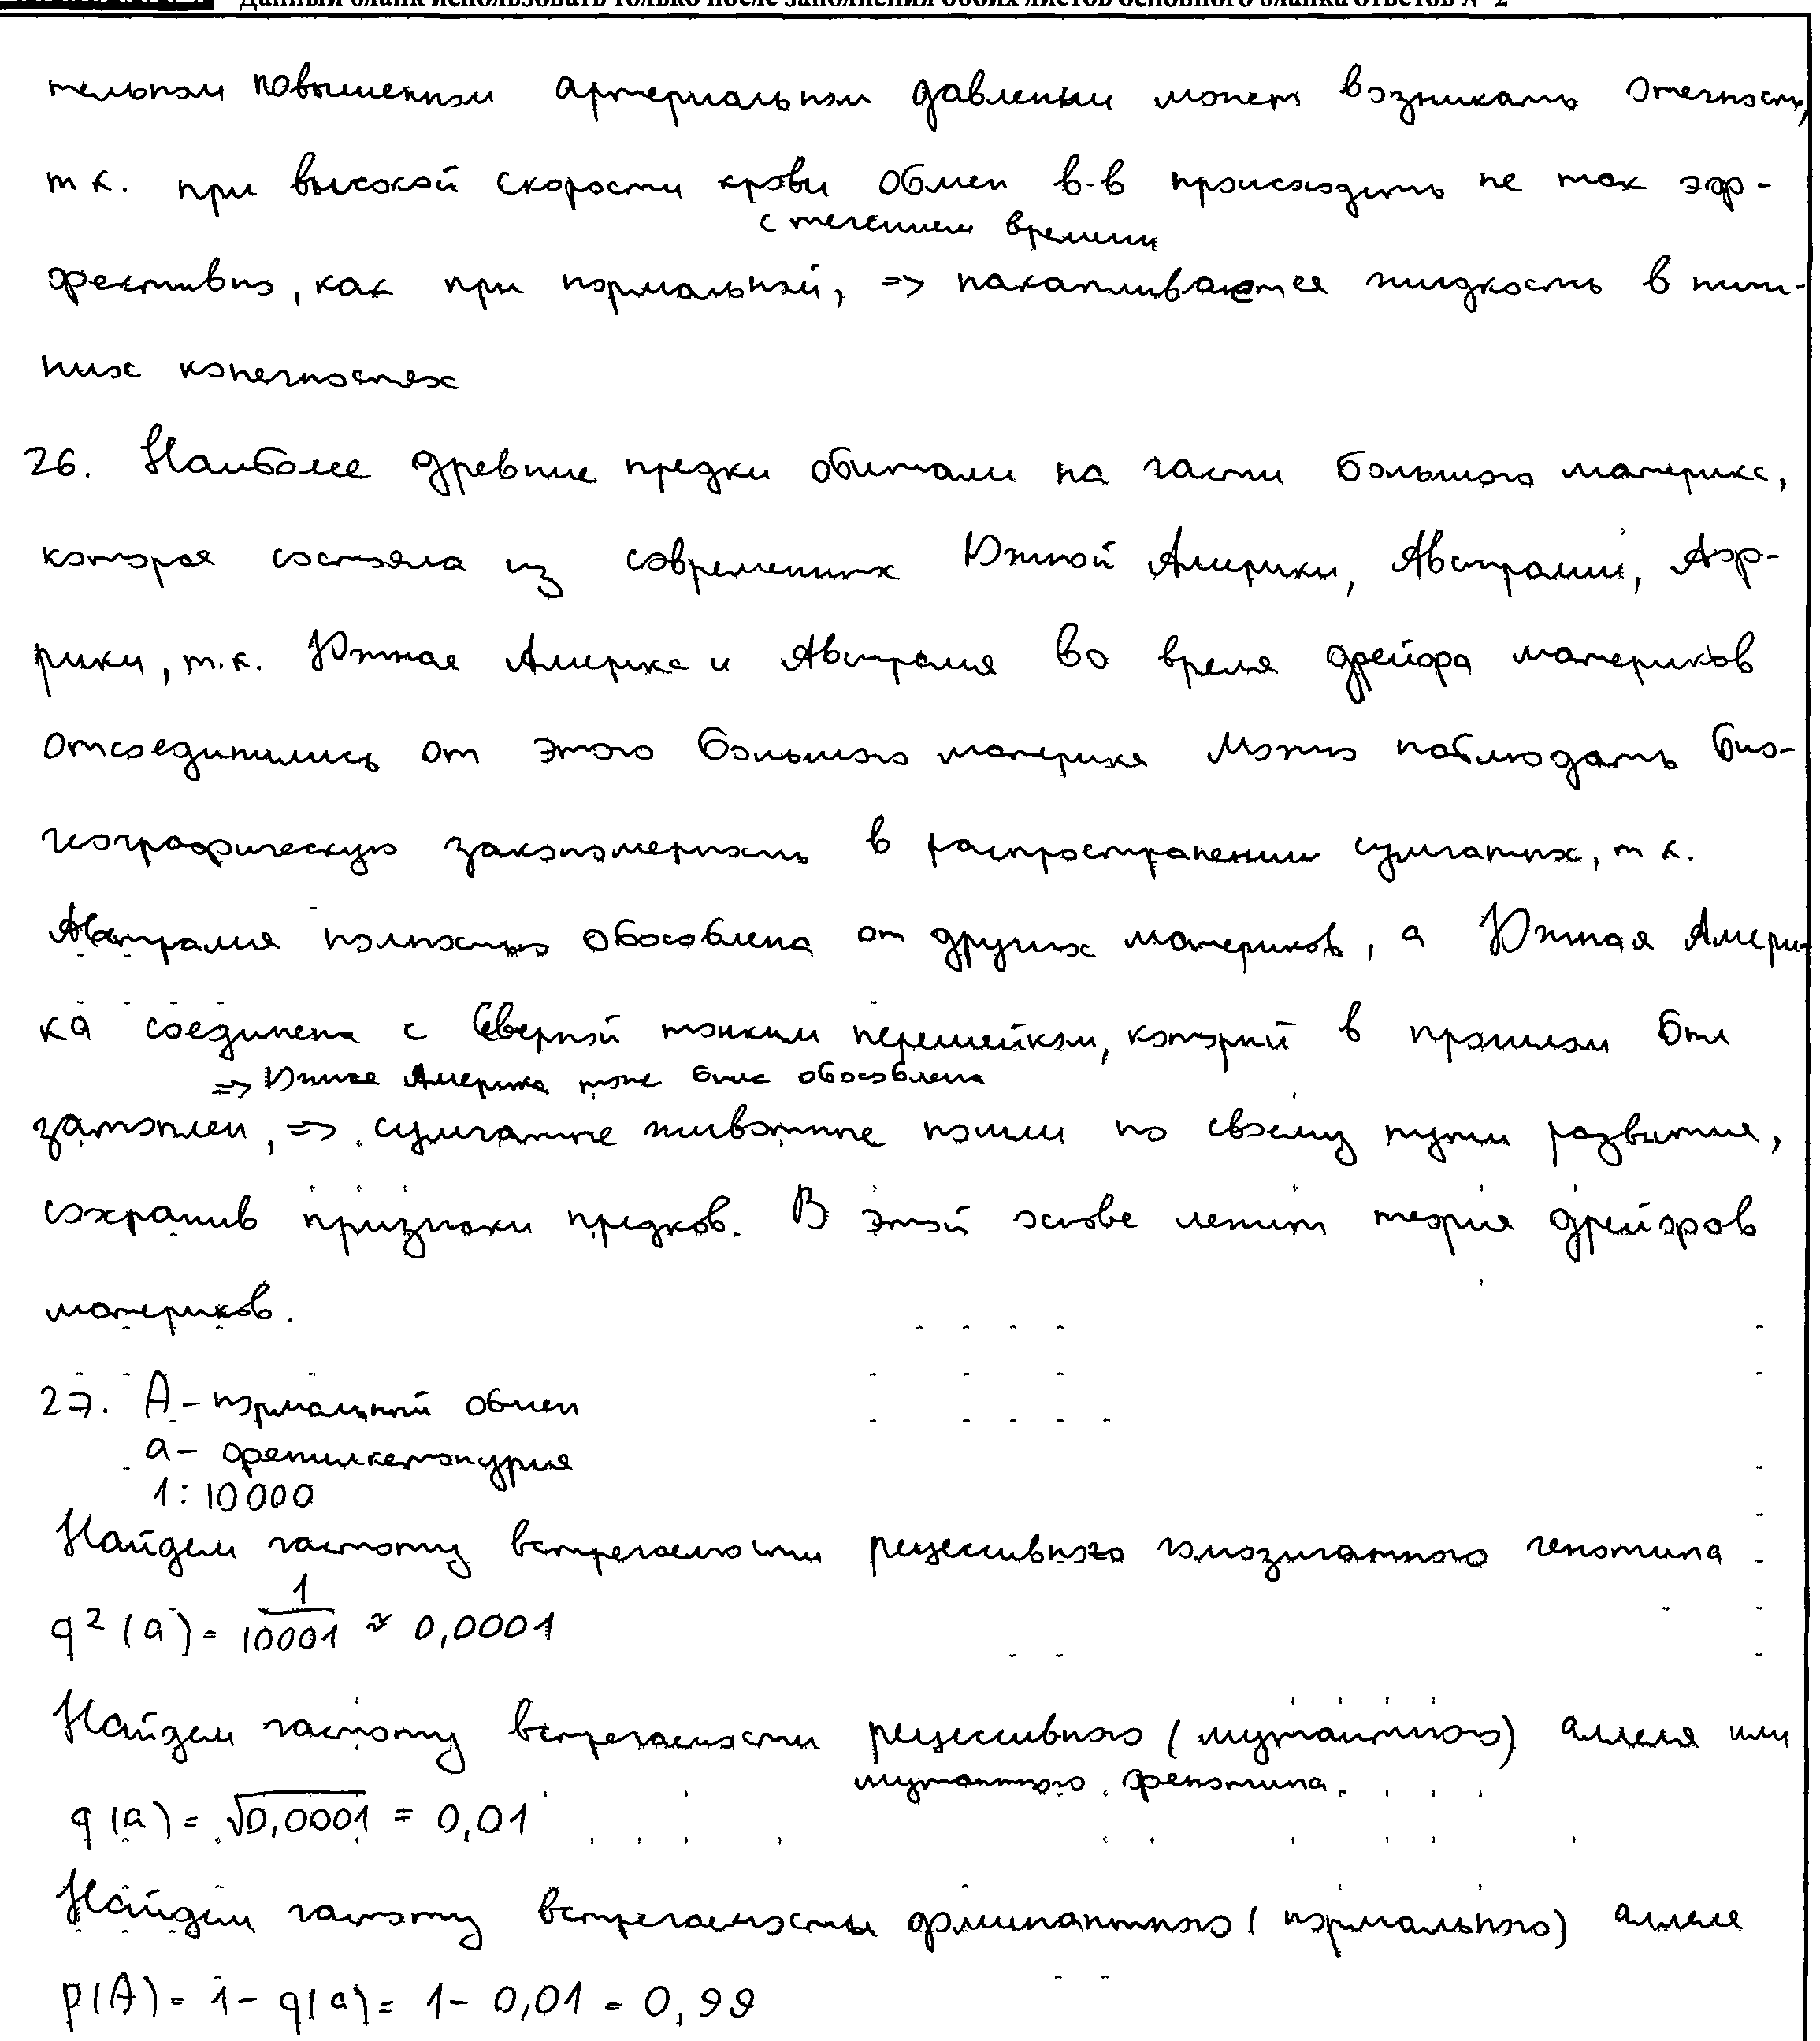 Данный бланк использовать только после заполнения обоих листов основного бланка ответов № 2
тельном повышенном артериальном давлении может возникать отечность,
т к. при высокой скорости крови обмен в-в происходить не так эф-
с течением времени
фективно, как при нормальной, => накапливается жидкость в ниж-
них конечностях
26. Наиболее древние предки обитали на части большого материка,
которая состояла из современных Южной Америки, Австралии, Аф-
рики, т.к. Южная Америка и Австралия во время дрейфа материков
отсоединились от этого большого материка Можно наблюдать био-
географическую закономерность в распространении сумчатых, т к.
Австралия полностью обособлена от других материков, а Южная Амери-
ка соединена с Северной тонким перешейком, который в прошлом был
=> Южная Америка тоже была обособлена
затоплен, => сумчатые животные пошли по своему пути развития,
сохранив признаки предков. В этой основе лежит теория дрейфов
материков.
27. А - нормальный обмен
а - фенилкетонурия
1:10000
Найдем частоту встречаемости рецессивного гомозиготного генотипа
q²(a) = 1/10001 ≈ 0,0001
Найдем частоту встречаемости рецессивного (мутантного) аллеля или
мутантного фенотипа.
q(a) = √0,0001 = 0,01
Найдем частоту встречаемости доминантного (нормального) аллеля
p(A) = 1 - q(a) = 1 - 0,01 = 0,99